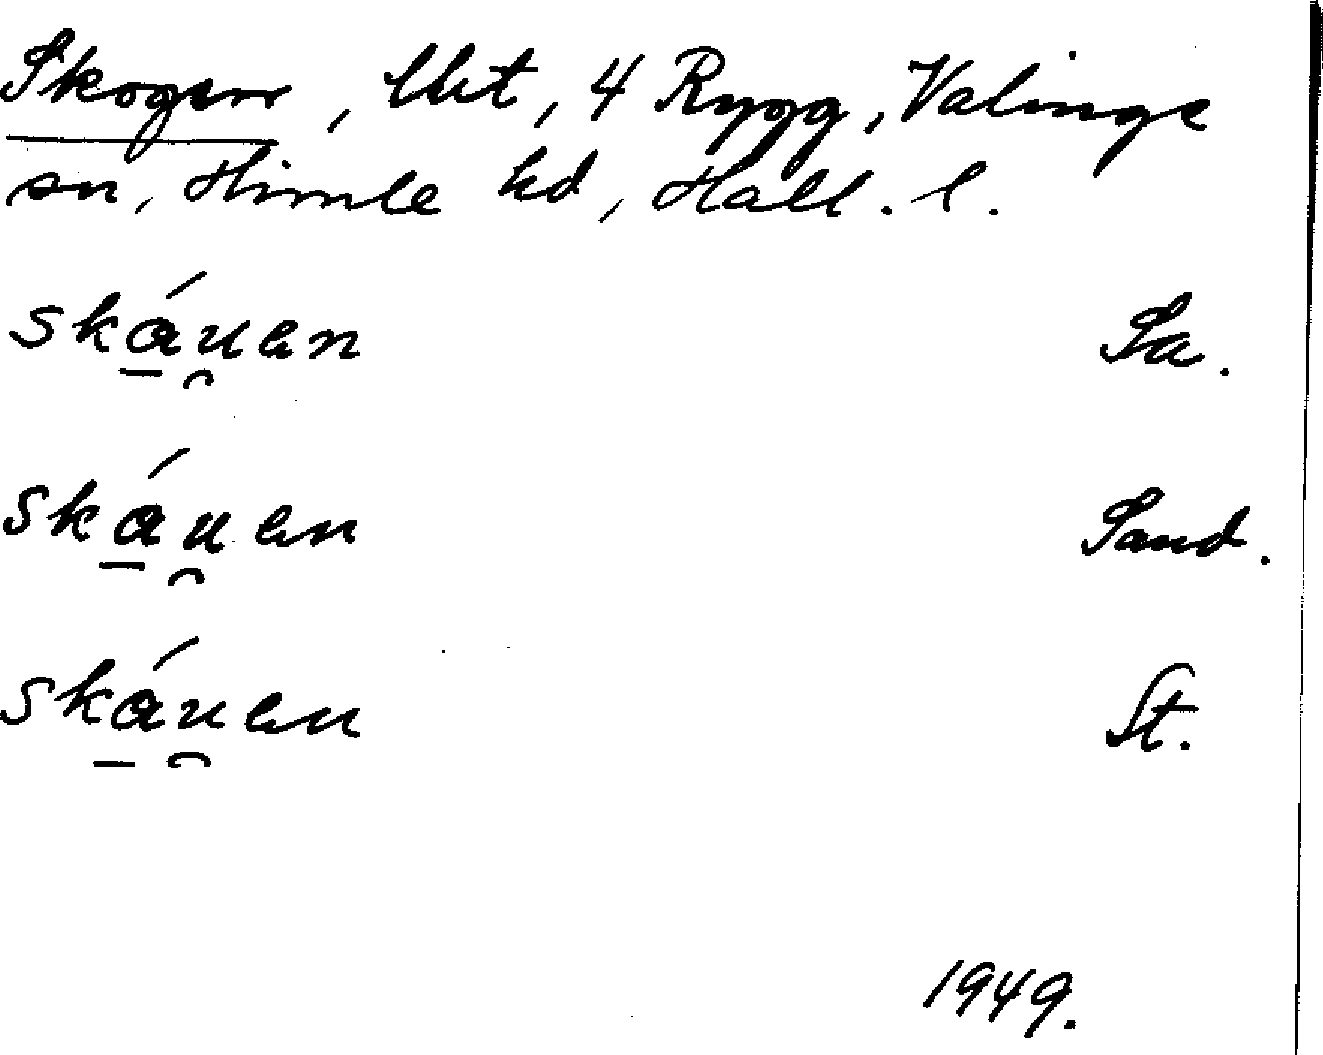 Skogen, lht, 4 Rygg, Valinge
sn, Himle hd, Hall. l.
ská̱u̯en Sa.
ská̱u̯en Sand.
ská̱u̯en St.
1949.